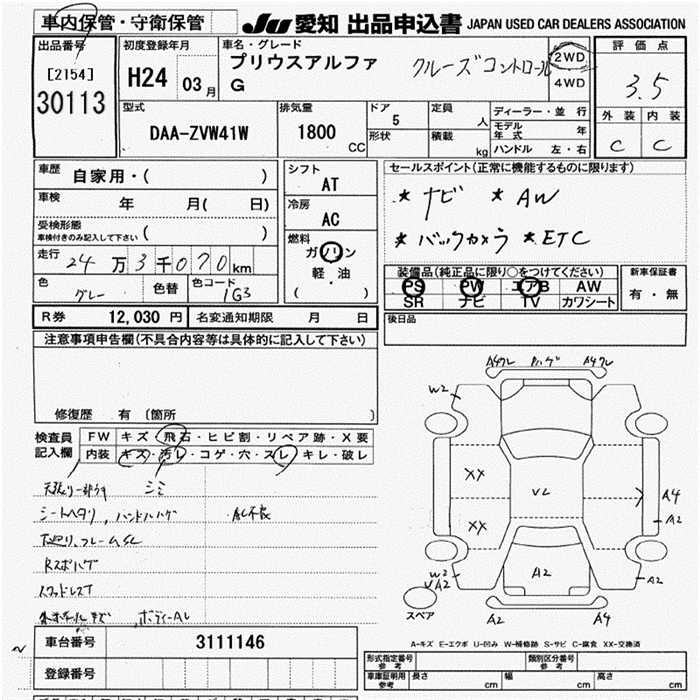 車内保管・守衛保管
JU 愛知 出品申込書 JAPAN USED CAR DEALERS ASSOCIATION
出品番号
[2154]
30113
初度登録年月
H24 03月
車名・グレード
プリウスアルファ
G
クルーズコントロール
2WD
4WD
評価点
3.5
外装 内装
C C
型式
DAA-ZVW41W
排気量
1800
CC
ドア
5
形状
定員
人
積載
kg
ディーラー・並行
モデル年式 年
ハンドル 左・右
車歴
自家用・( )
車検 年 月( 日)
受検形態
車検付きのみ記入して下さい ( )
走行 24万3千070km
色 グレー 色替 色コード 1G3
シフト
AT
冷房
AC
燃料
ガソリン
軽・油
( )
セールスポイント(正常に機能するものに限ります)
* ナビ * AW
* バックカメラ * ETC
装備品(純正品に限り○をつけてください)
PS PW エアB AW
SR ナビ TV カワシート
新車保証書
有・無
後日品
R券 12,030円 名変通知期限 月 日
注意事項申告欄(不具合内容等は具体的に記入して下さい)
修復歴 有〔箇所
検査員記入欄
FW キズ・飛石・ヒビ割・リペア跡・X要
内装 キズ・汚レ・コゲ・穴・スレ・キレ・破レ
シミ
シートヘタリ、ハンドルハゲ
Rスポハゲ
W2
XX
XX
VL
A2
A4
A2
A2
W2
A2
A4
スペア
A-キズ E-エクボ U-凹み W-補修跡 S-サビ C-腐食 XX-交換済
車台番号 3111146
登録番号
形式指定番号 参考
類別区分番号 参考
車庫証明用 参考 長さ cm 幅 cm 高さ cm